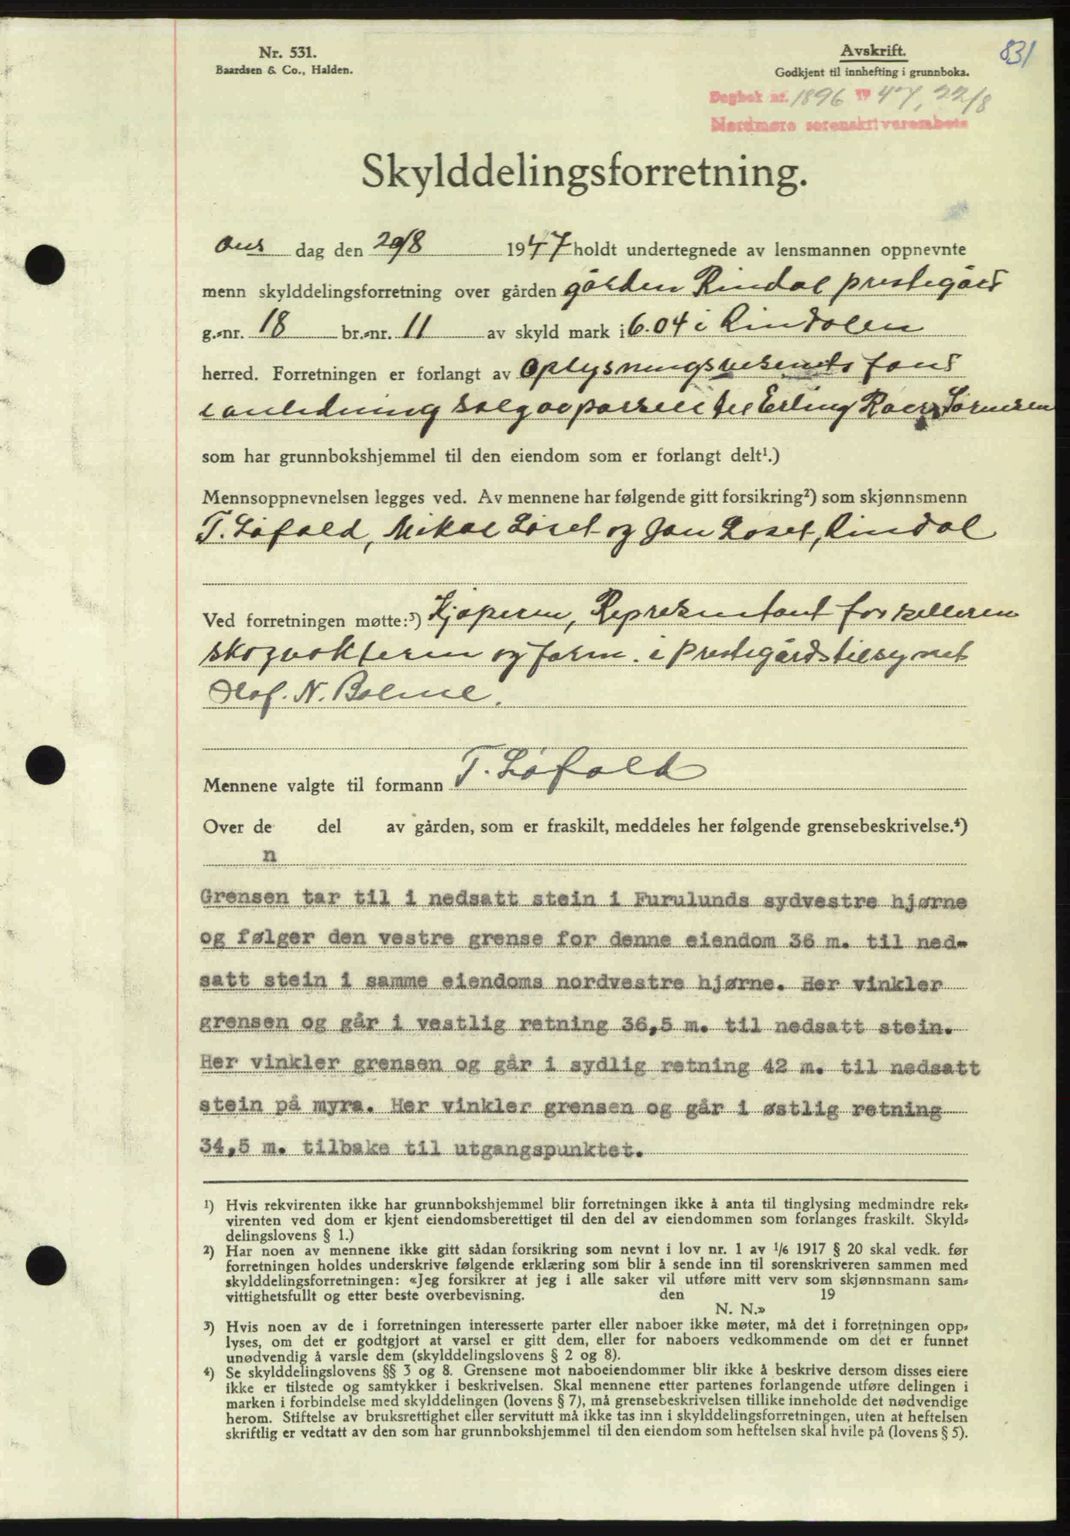 831
Nr. 531.
Baardsen & Co., Halden.
Avskrift.
Godkjent til innhefting i grunnboka.
Dagbok nr. 1896 19 47, 22/8
Nordmøre sorenskriverembete
Skylddelingsforretning.
Ons dag den 20/8 1947 holdt undertegnede av lensmannen oppnevnte
menn skylddelingsforretning over gården gården Rindal prestegård
g.-nr. 18 br.-nr. 11 av skyld mark i 6.04 i Rindalen
herred. Forretningen er forlangt av Oplysningsvesenets fond
i anledning salg av parsell til Erling Sørensen
som har grunnbokshjemmel til den eiendom som er forlangt delt¹.)
Mennsoppnevnelsen legges ved. Av mennene har følgende gitt forsikring²) som skjønnsmenn
T. Løfald, Mikal Løset og Jon Løset, Rindal
Ved forretningen møtte:³) Kjøperen, Representant for selleren
skogvokteren og form. i prestegårdstilsynet
Olaf. N. Bolme.
Mennene valgte til formann T. Løfald
Over de del av gården, som er fraskilt, meddeles her følgende grensebeskrivelse.⁴)
n
Grensen tar til i nedsatt stein i Furulunds sydvestre hjørne
og følger den vestre grense for denne eiendom 36 m. til ned-
satt stein i samme eiendoms nordvestre hjørne. Her vinkler
grensen og går i vestlig retning 36,5 m. til nedsatt stein.
Her vinkler grensen og går i sydlig retning 42 m. til nedsatt
stein på myra. Her vinkler grensen og går i østlig retning
34,5 m. tilbake til utgangspunktet.
¹) Hvis rekvirenten ikke har grunnbokshjemmel blir forretningen ikke å anta til tinglysing medmindre rek-
virenten ved dom er kjent eiendomsberettiget til den del av eiendommen som forlanges fraskilt. Skyld-
delingslovens § 1.)
²) Har noen av mennene ikke gitt sådan forsikring som nevnt i lov nr. 1 av 1/6 1917 § 20 skal vedk. før
forretningen holdes underskrive følgende erklæring som blir å sende inn til sorenskriveren sammen med
skylddelingsforretningen: «Jeg forsikrer at jeg i alle saker vil utføre mitt verv som skjønnsmann sam-
vittighetsfullt og etter beste overbevisning. den 19
N. N.»
³) Hvis noen av de i forretningen interesserte parter eller naboer ikke møter, må det i forretningen opp-
lyses, om det er godtgjort at varsel er gitt dem, eller for naboers vedkommende om det er funnet
unødvendig å varsle dem (skylddelingslovens § 2 og 8).
⁴) Se skylddelingslovens §§ 3 og 8. Grensene mot naboeiendommer blir ikke å beskrive dersom disses eiere
ikke er tilstede og samtykker i beskrivelsen. Skal mennene etter partenes forlangende utføre delingen i
marken i forbindelse med skylddelingen (lovens § 7), må grensebeskrivelsen tillike inneholde det nødvendige
herom. Stiftelse av bruksrettighet eller servitutt må ikke tas inn i skylddelingsforretningen, uten at heftelsen
skriftlig er vedtatt av den som har grunnbokshjemmel til den eiendom som heftelsen skal hvile på (lovens § 5).